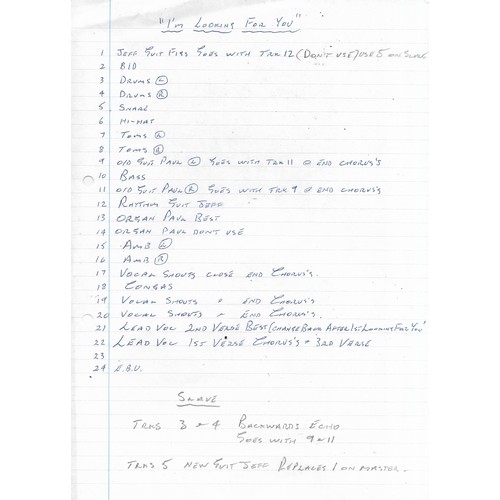 "I'm Looking For You"
1 Jeff Guit Figs Goes with Trk 12 (Don't use) use 5 on Slave
2 B/D
3 Drums (L)
4 Drums (R)
5 Snare
6 Hi-Hat
7 Toms (L)
8 Toms (R)
9 O/D Guit Paul (L) Goes with Trk 11 @ end chorus's
10 Bass
11 O/D Guit Paul (R) Goes with Trk 9 @ end chorus's
12 Rhythm Guit Jeff
13 Organ Paul Best
14 Organ Paul Don't use
15 Amb (L)
16 Amb (R)
17 Vocal Shouts Close End Chorus's.
18 Congas
19 Vocal Shouts " End Chorus's
20 Vocal Shouts " End Chorus's.
21 Lead Voc 2nd Verse Best (Change Back After 1st Looking For You"
22 Lead Voc 1st Verse Chorus's + 3rd Verse
23
24 E.B.U.
Slave
Trks 3 + 4 Backwards Echo
Goes with 9 + 11
Trks 5 New Guit Jeff Replaces 1 on Master.